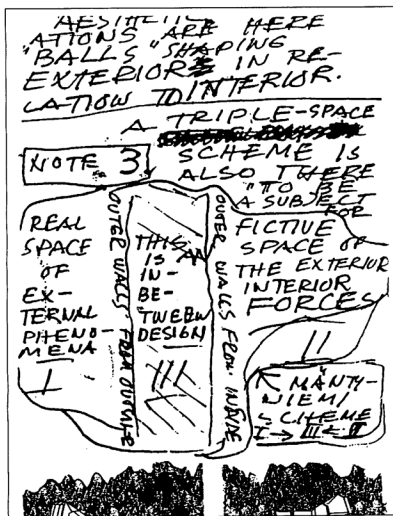 AESTHETIC
ATIONS ARE HERE
"BALLS" SHAPING
EXTERIOR IN RE-
LATION TO INTERIOR.
A TRIPLE-SPACE
SCHEME IS
ALSO THERE
"TO BE
A SUBJECT
FOR
NOTE 3
REAL
SPACE
OF
EX-
TERNAL
PHENO-
MENA
I
OUTER WALLS FROM OUTSIDE
THIS
IS AN
IN-
BE-
TWEEN
DESIGN
III
OUTER WALLS FROM INSIDE
FICTIVE
SPACE OF
THE EXTERIOR
INTERIOR
FORCES
II
MÄNTY-
NIEMI
SCHEME
I → III ← II